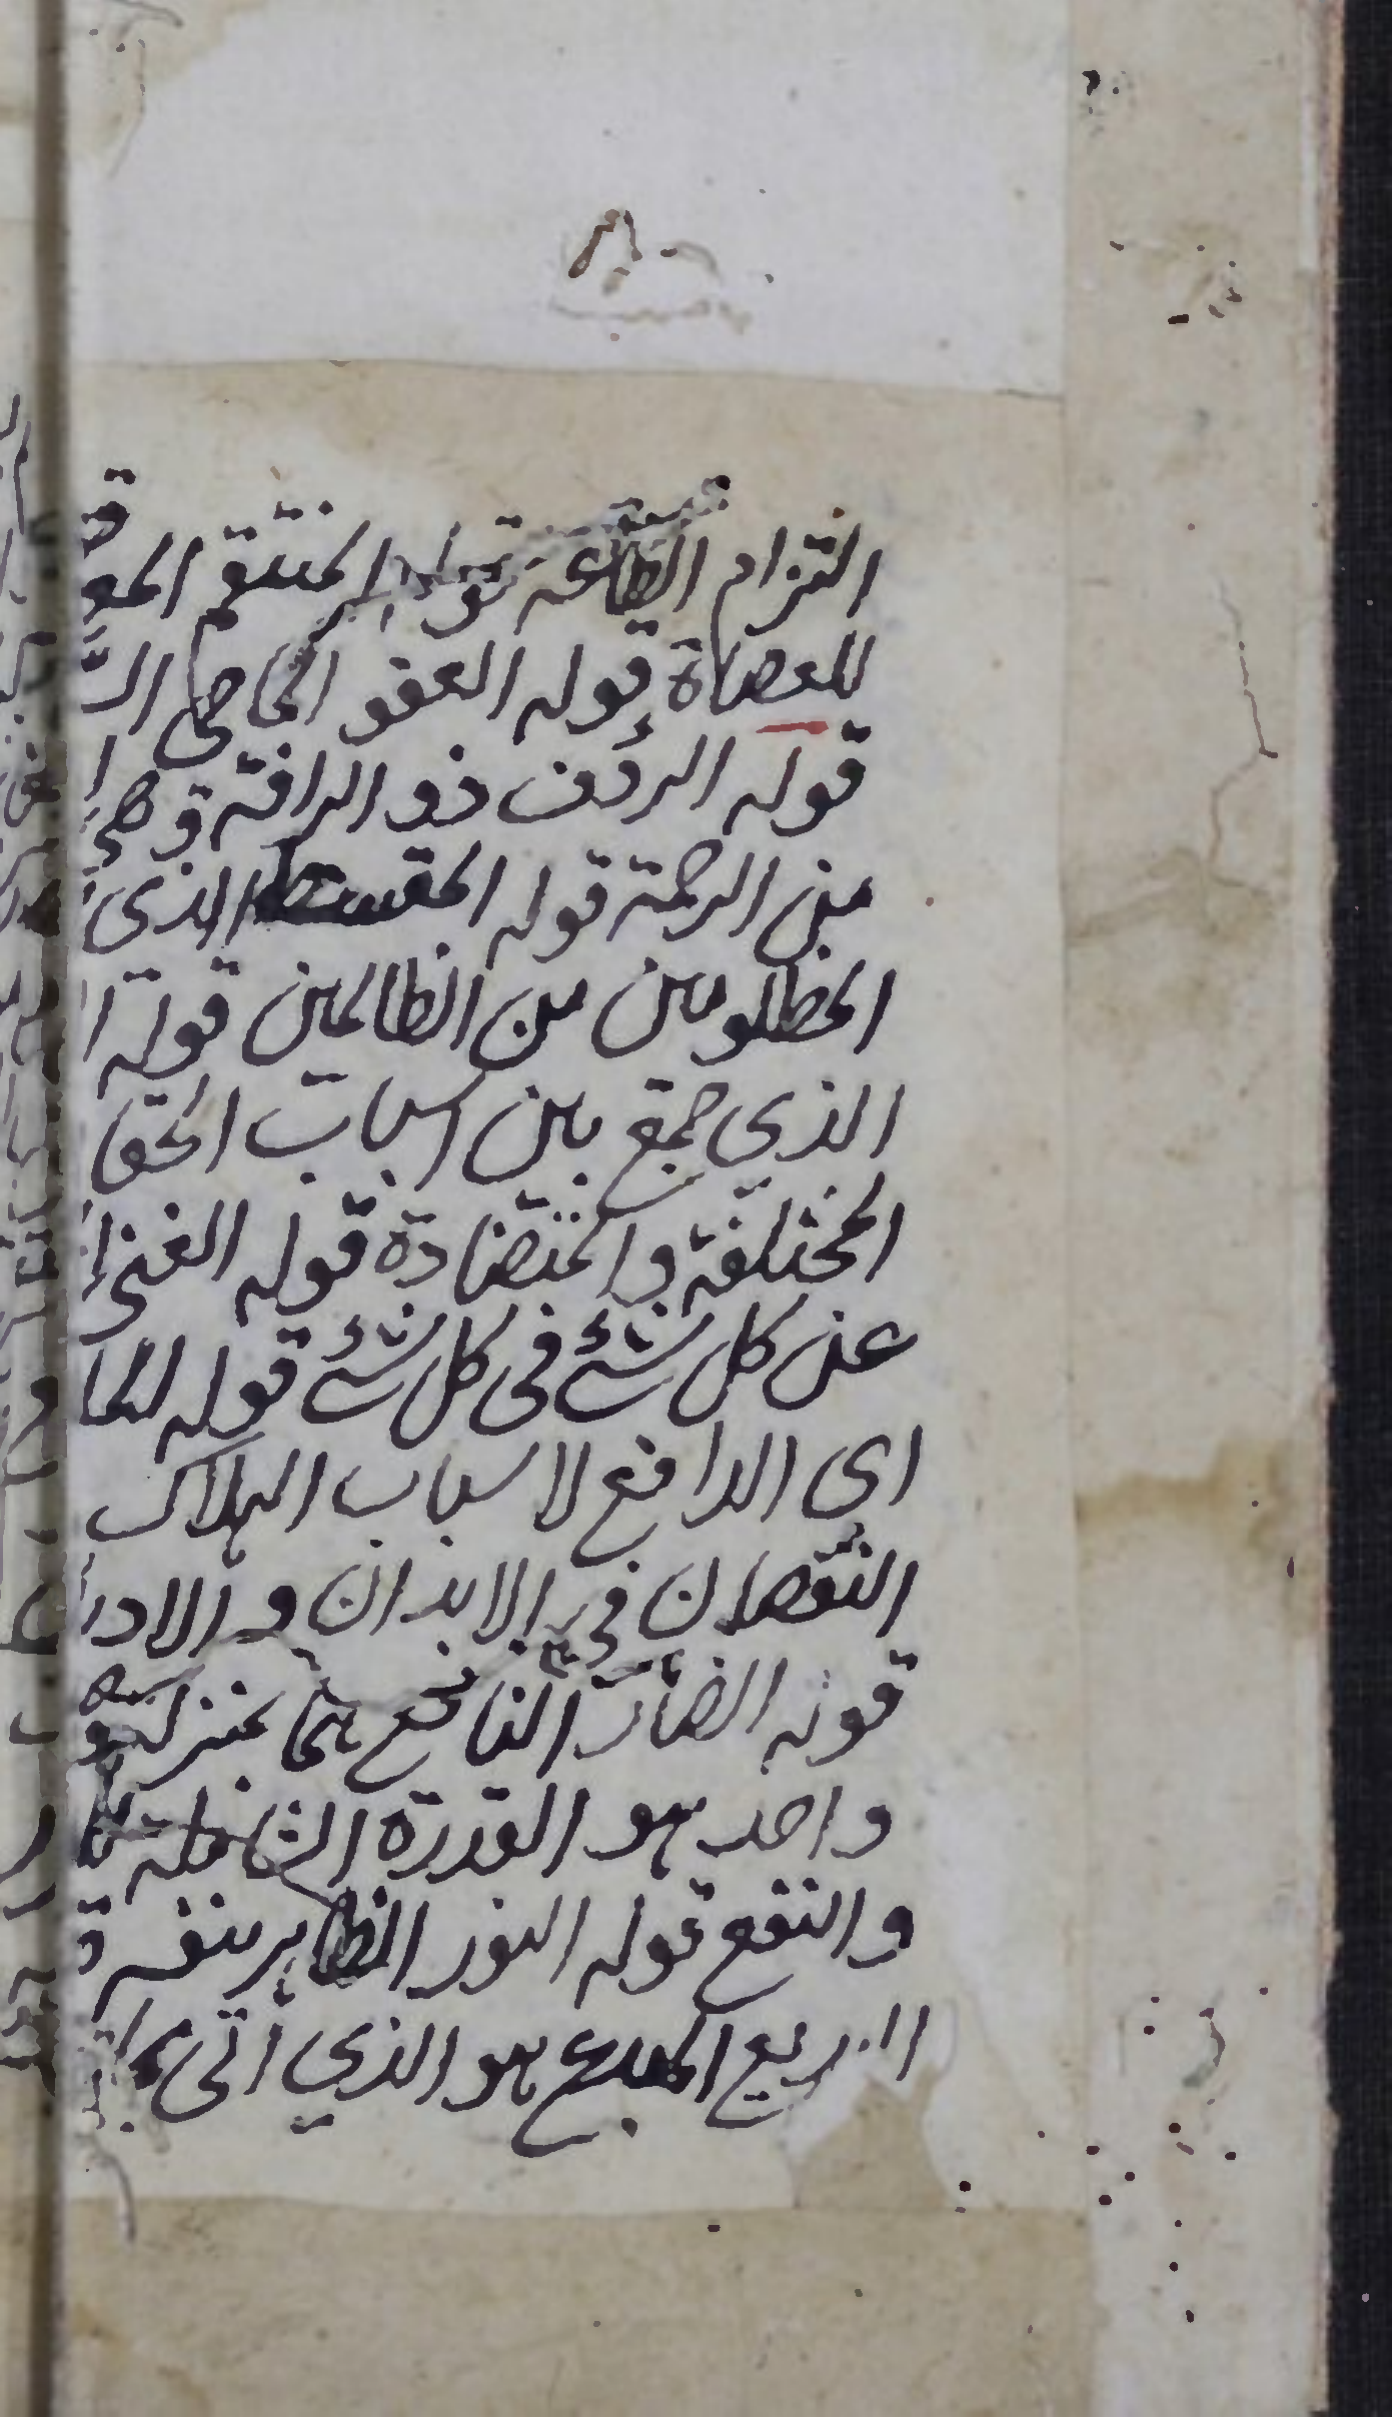 التزام الطاعه قوله المنتقم المعو
للعصاة قوله العفو الماحي الس
قوله الرؤف ذو الرافة وهي ا
من الرحمة قوله المقسط الذي
المظلومين من الظالمين قوله ا
الذي جمع بين اسباب الحق
المختلفة والمتضادة قوله الغني ا
عن كل شئ في كل شئ قوله الما
اي الدافع لاسباب الهلاك
النقصان في الابدان والاد
قوله الضار النافع هما بمنزلة و
واحد هو القدرة الشاملة
والنفع قوله النور الظاهر بنفسه
البديع المبدع هو الذي أتى